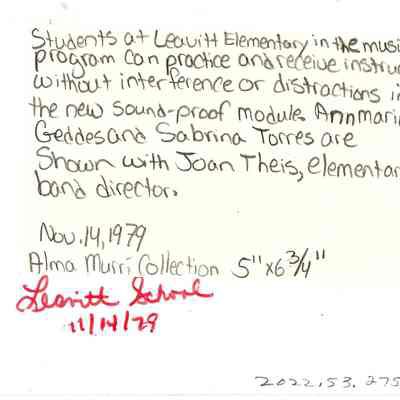 Students at Leavitt Elementary in the musi
program can practice and receive instru
without interference or distractions i
the new sound-proof module. Annmari
Geddes and Sabrina Torres are
Shown with Joan Theis, elementar
band director.
Nov. 14, 1979
Alma Murri Collection 5" x 6 3/4"
Leavitt School
11/14/79
2022.53.275